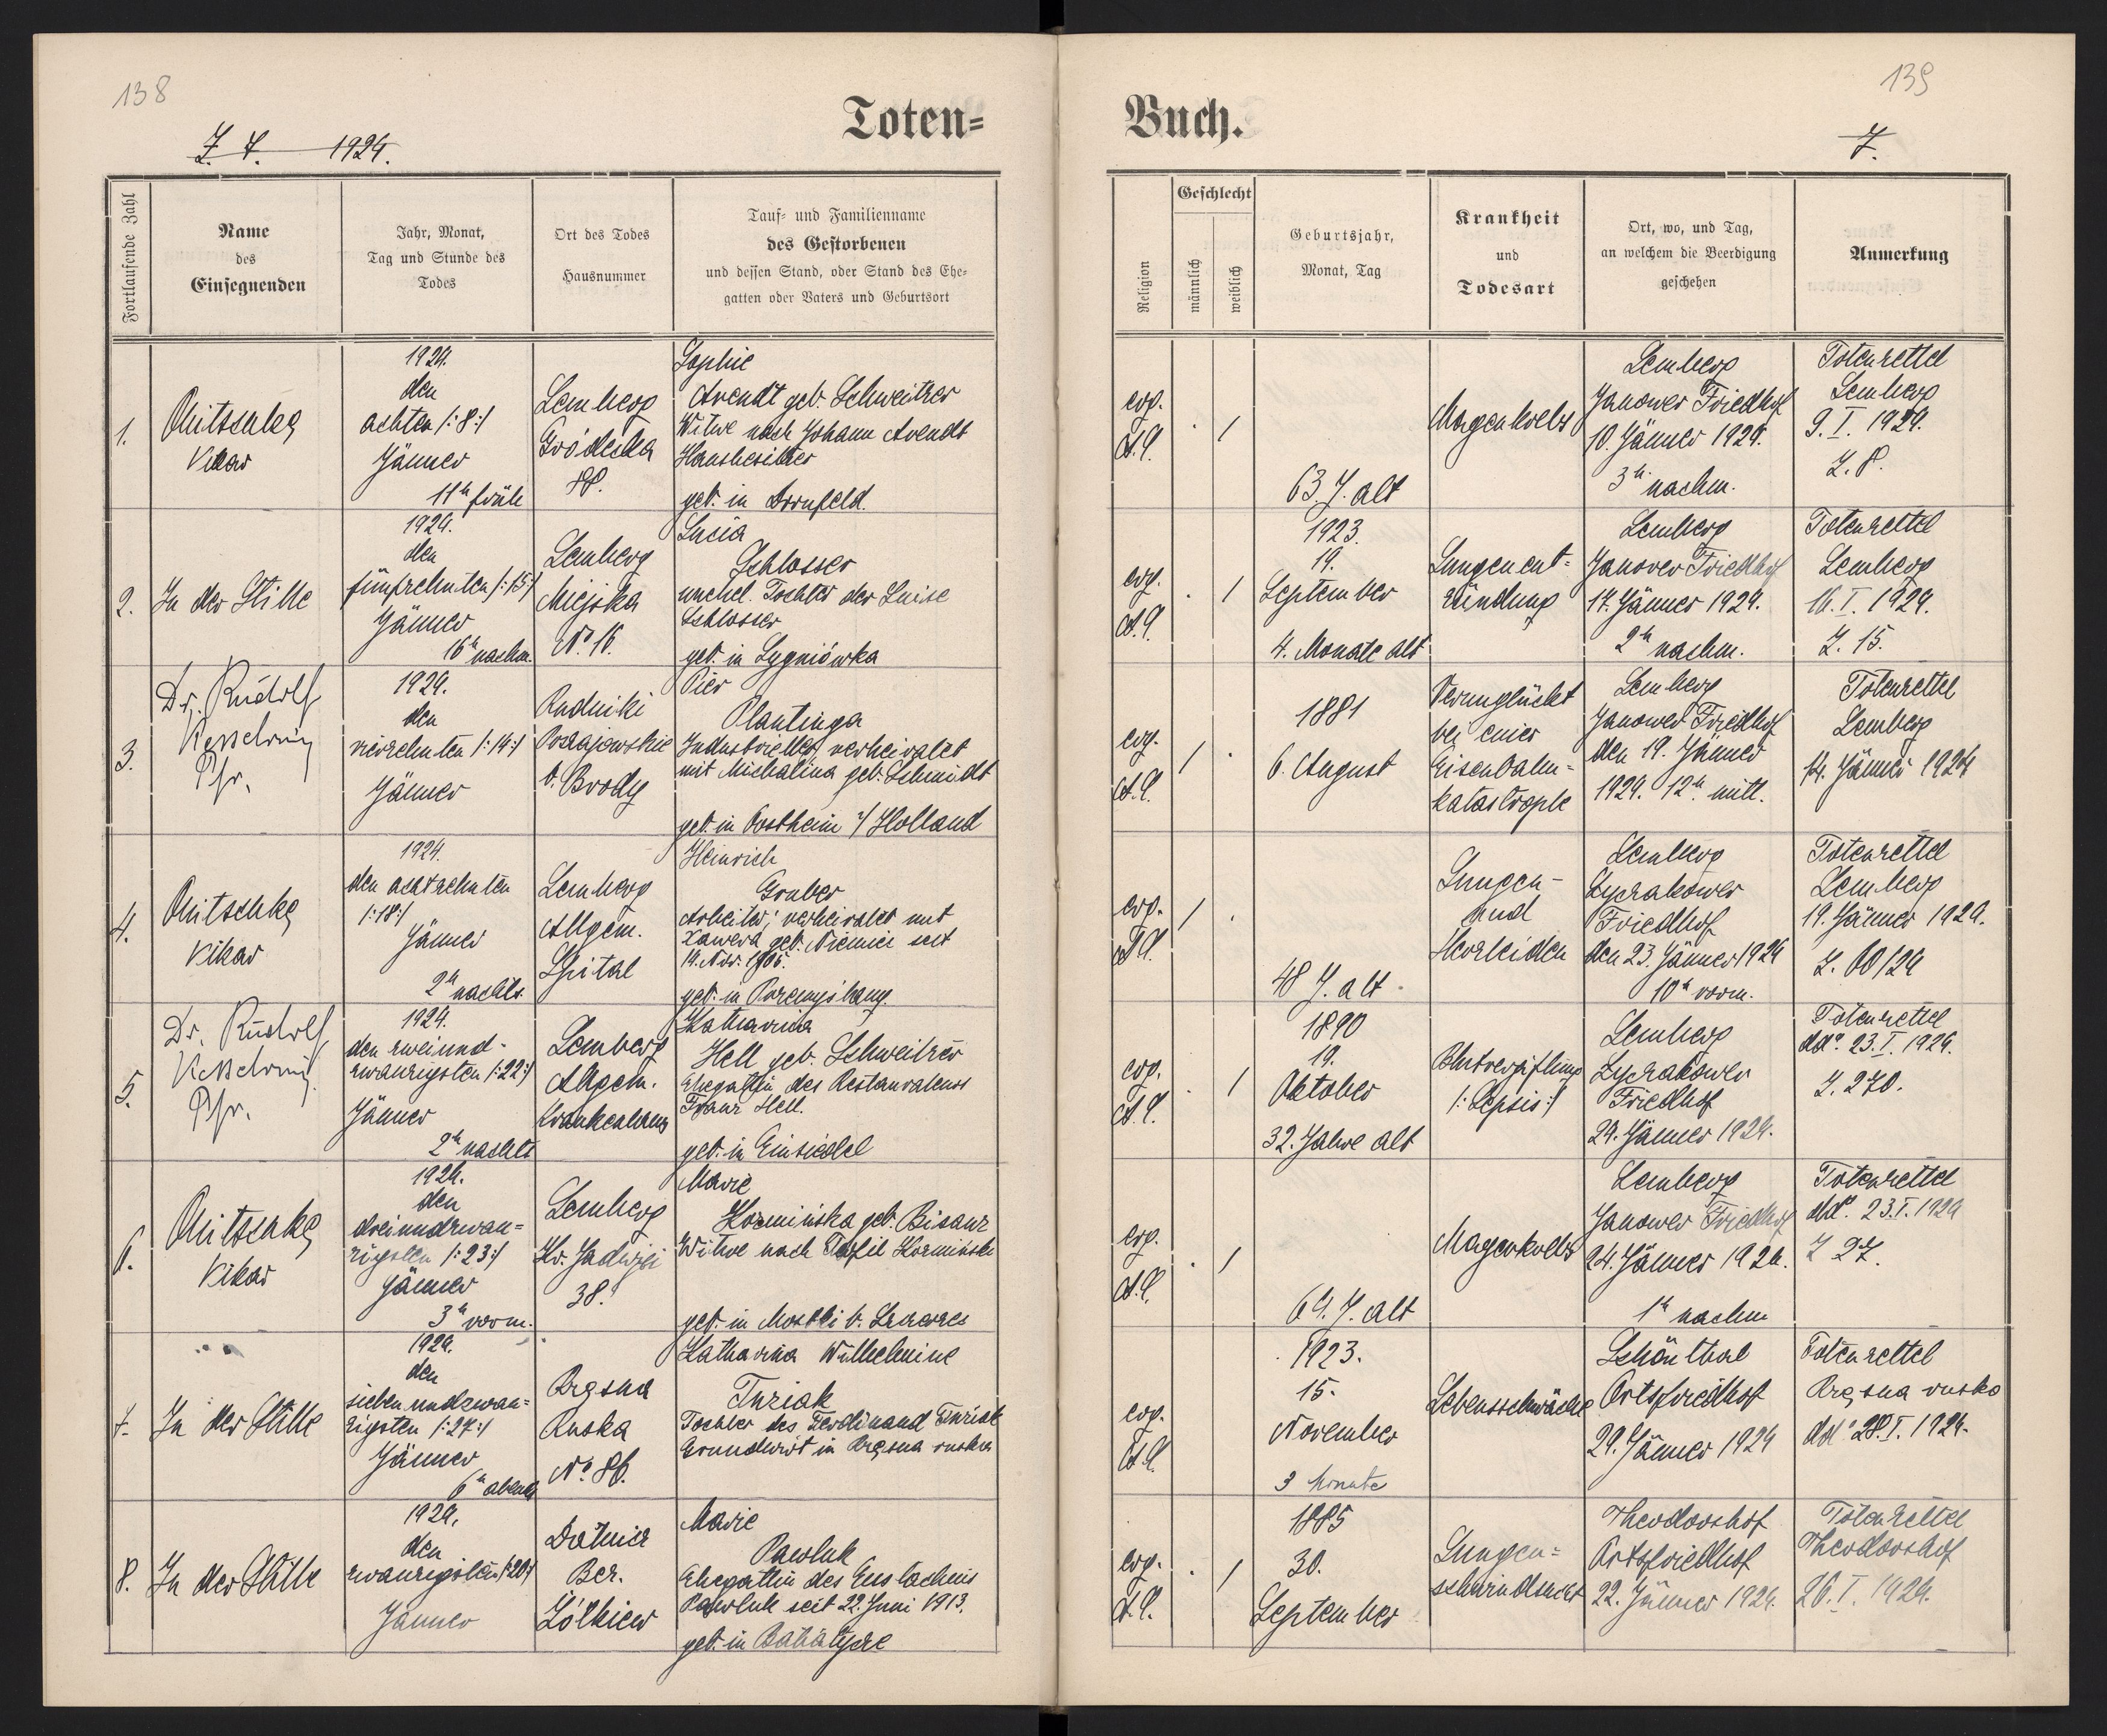 138
Toten=
Z. 7. 1924.
Fortlaufende Zahl
Name
des
Einsegnenden
Jahr, Monat,
Tag und Stunde des
Todes
Ort des Todes
Hausnummer
Tauf= und Familienname
des Gestorbenen
und dessen Stand, oder Stand des Ehe=
gatten oder Vaters und Geburtsort
1.
Mitschke
Vikar
1924.
den
achten /:8:/
Jänner
11 h früh
Lemberg
Gródecka
88.
Sophie
Arendt geb. Schweitzer
Witwe nach Johann Arendt
Hausbesitzer
geb. in Dornfeld.
2.
In der Stille
1924.
den
fünfzehnten /:15:/
Jänner
16 h nachm.
Lemberg
Miejska
No 16.
Lucia
Schlosser
unehel. Tochter der Luise
Schlosser
geb. in Sygniówka
3.
Dr. Rudolf
Kesselring
Pfr.
1924.
den
vierzehnten /:14:/
Jänner
Rudniki
b. Brody
Pier
Plantinga
Industrieller, verheiratet
mit Michalina geb. Schmidt
geb. in Oostheim i/ Holland
4.
Mitschke
Vikar
1924.
den achtzehnten
/:18:/
Jänner
2 h nachts.
Lemberg
Allgem.
Spital
Heinrich
Gruber
Arbeiter; verheiratet mit
Xawera geb. Niemiec seit
14. Nov. 1905.
geb. in
5.
Dr. Rudolf
Kesselring.
Pfr.
1924.
den zweiund-
zwanzigsten /:22:/
Jänner
2 h nachts
Lemberg
Allgem.
Krankenhaus
Katharina
Hell geb. Schweitzer
Ehegattin des Restaurateurs
Franz Hell.
geb. in Einsiedel
6.
Mitschke
Vikar
1924.
den
dreiundzwan=
zigsten /:23:/
Jänner
3 h vorm.
Lemberg
Kr. Jadwigi
38.
Marie
Kozmińska geb. Bisanz
Witwe nach Teofil Kozmiński
geb. in Mostki b.
7.
In der Stille
1924.
den
siebenundzwan=
zigsten /:27:/
Jänner
6 h abends
Rzęsna
Ruska
No. 86.
Katharina Wilhelmine
Turiak
Tochter des Ferdinand Turiak
Grundwirt in Rzęsna ruska
8.
In der Stille
1924.
den
zwanzigsten /:20:/
Jänner
Bez.
Żółkiew
Marie
Pawluk
Ehegattin des Eustachius
Pawluk seit 22. Juni 1913.
geb. in
139
Buch.
7.
Religion
Geschlecht
männlich
weiblich
Geburtsjahr,
Monat, Tag
Krankheit
und
Todesart
Ort, wo, und Tag,
an welchem die Beerdigung
geschehen
Anmerkung
evg.
A.C.
. /
63. J. alt
Magenkrebs
Lemberg
Janower Friedhof
10. Jänner 1924.
3 h nachm.
Totenzettel
Lemberg
9. I. 1924.
Z. 8.
evg.
A.C.
. /
1923.
19.
September
4. Monate alt
Lungenent=
zündung
Lemberg
Janower Friedhof
17. Jänner 1924.
2 h nachm.
Totenzettel
Lemberg
16. I. 1924.
Z. 15.
evg.
A.C.
/ .
1881
6. August
Verunglückt
bei einer
Eisenbahn=
katastrophe
Lemberg
Janower Friedhof
den 19. Jänner
1924. 12 h mitt.
Totenzettel
Lemberg
14. Jänner 1924
evg.
A.C.
/ .
48 J. alt.
Lungen-
und
Herzleiden
Lemberg
Lyczakower
Friedhof
den 23. Jänner 1924
10 h vorm.
Totenzettel
Lemberg
19. Jänner 1924.
Z. 60/24
evg.
A.C.
. /
1890
19.
Oktober
32. Jahre alt
Blutvergiftung
/: Sepsis :/
Lemberg
Lyczakower
Friedhof
24. Jänner 1924.
Totenzettel
ddo. 23. I. 1924.
Z. 270.
evg.
A.C.
. /
64. J. alt
Magenkrebs
Lemberg
Janower Friedhof
24. Jänner 1924.
1 h nachm
Totenzettel
ddo. 23. I. 1924
Z 27.
evg.
A.C.
1923.
15.
November
3 Monate
Lebensschwäche
Schönthal
Ortsfriedhof
29. Jänner 1924
Totenzettel
Rzęsna ruska
ddo. 28. I. 1924.
evg.
A.C.
. /
1885
30.
September
Lungen=
schwindsucht
Theodorshof
Ortsfriedhof
22. Jänner 1924.
Totenzettel
Theodorshof
26. I. 1924.